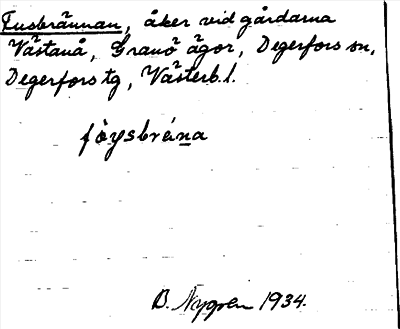 Fusbrännan, åker vid gårdarna
Västanå, Granö ägor, Degerfors sn,
Degerfors tg, Västerb. l.
fòysbrána
B. Nygren 1934.